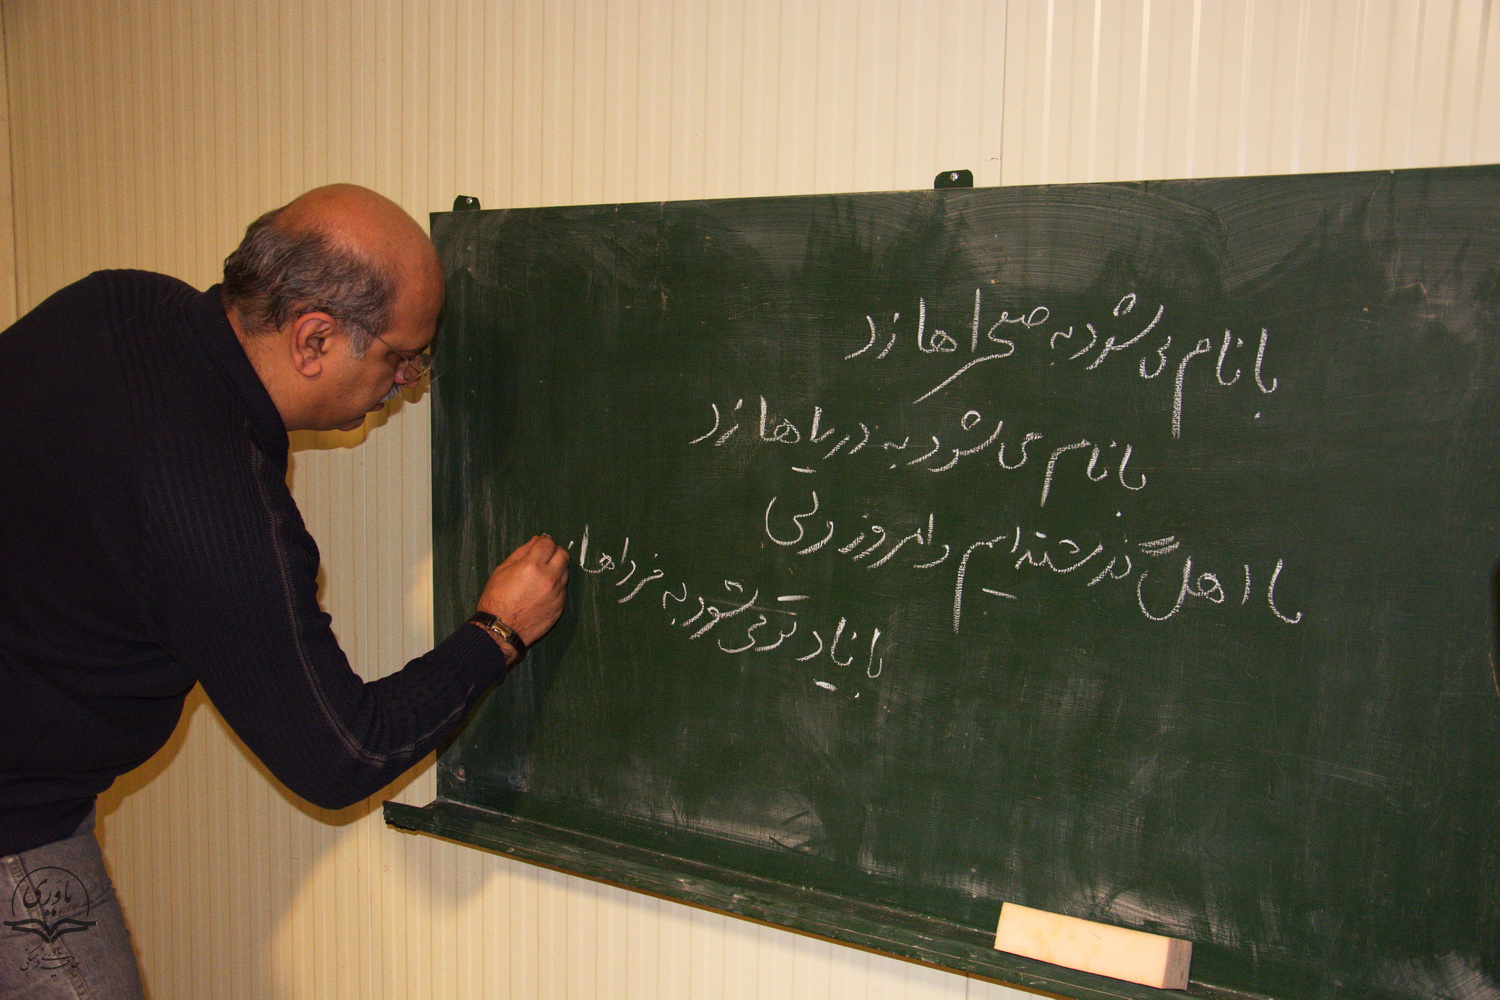 با نام می شود به صحراها زد
با نام می شود به دریاها زد
ما اهل گذشته ایم و امروز ولی
با یاد تو می شود به فرداها ز
یاوری